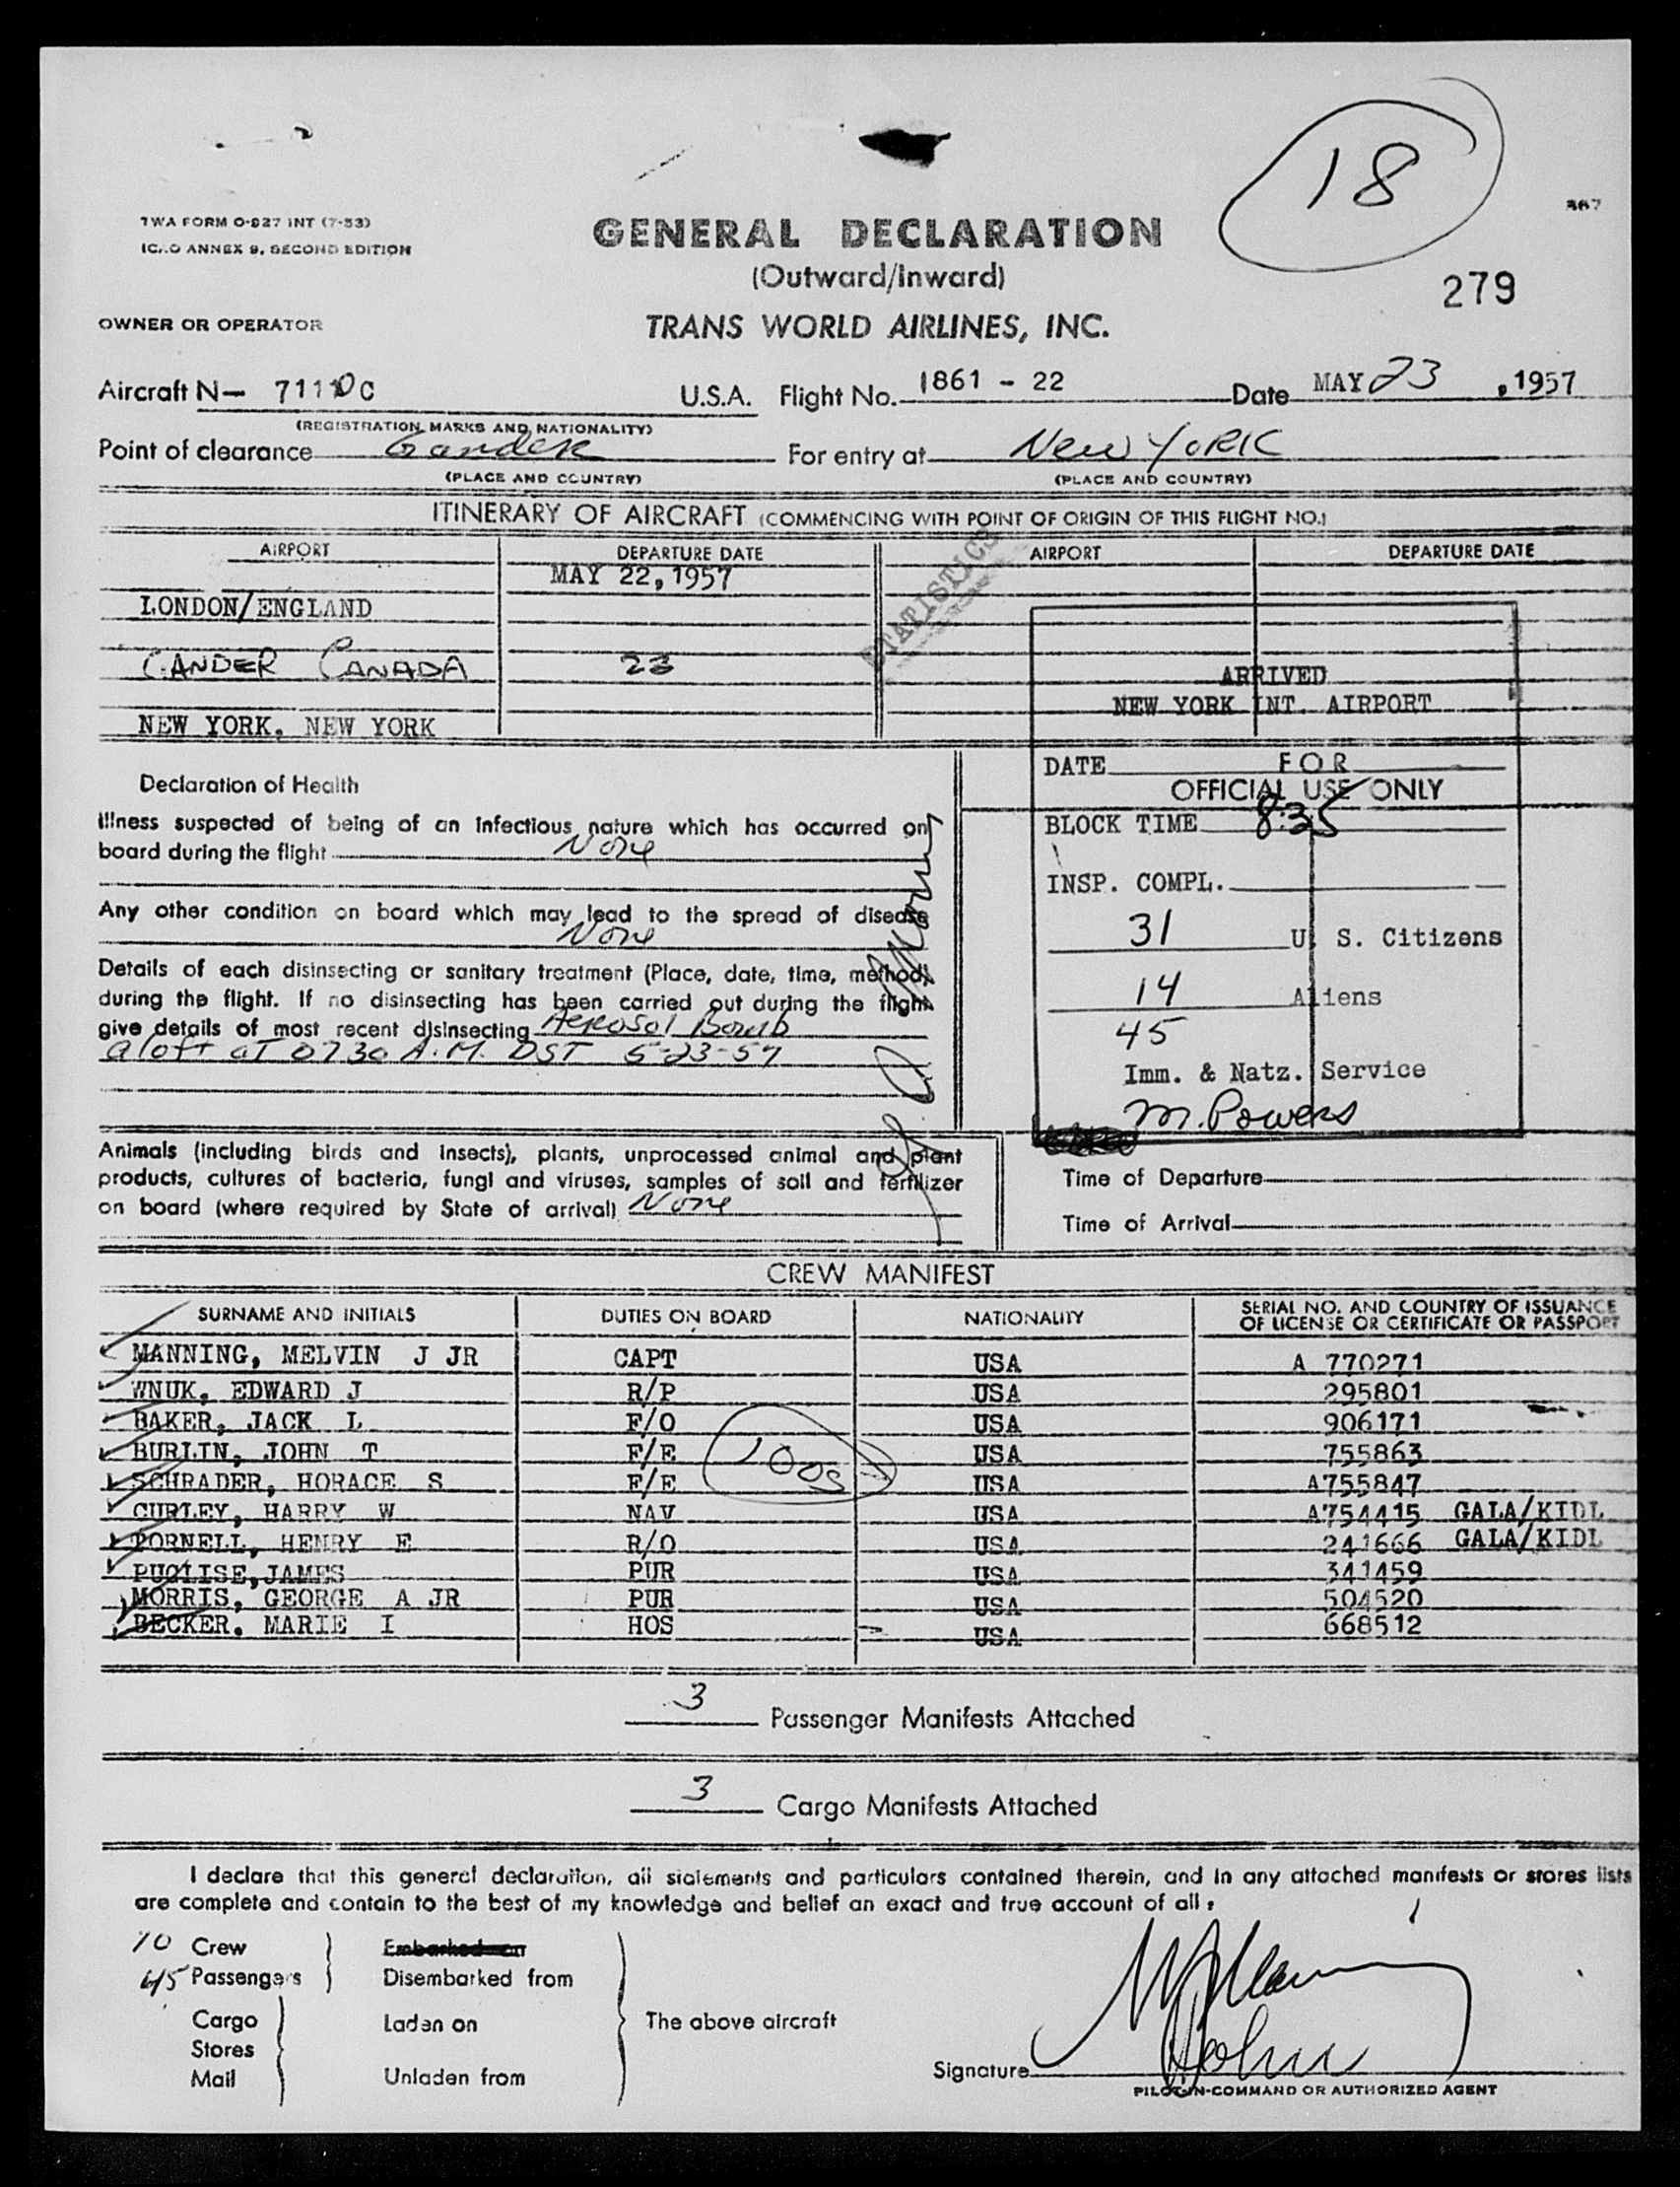 18
TWA FORM O-827 INT (7-53)
ICAO ANNEX 9, SECOND EDITION
367
GENERAL DECLARATION
(Outward/Inward)
279
OWNER OR OPERATOR
TRANS WORLD AIRLINES, INC.
Aircraft N— 71110C U.S.A. Flight No. 1861 - 22 Date MAY 23, 1957
(REGISTRATION MARKS AND NATIONALITY)
Point of clearance Gander For entry at New York
(PLACE AND COUNTRY) (PLACE AND COUNTRY)
ITINERARY OF AIRCRAFT (COMMENCING WITH POINT OF ORIGIN OF THIS FLIGHT NO.)
AIRPORT DEPARTURE DATE AIRPORT DEPARTURE DATE
MAY 22, 1957
LONDON/ENGLAND
STATISTICS
GANDER CANADA 23
NEW YORK, NEW YORK
ARRIVED
NEW YORK INT. AIRPORT
DATE
FOR
OFFICIAL USE ONLY
BLOCK TIME 8:35
INSP. COMPL.
31 U. S. Citizens
14 Aliens
45
Imm. & Natz. Service
M. Powers
Declaration of Health
Illness suspected of being of an infectious nature which has occurred on
board during the flight None
Any other condition on board which may lead to the spread of disease
None
Details of each disinsecting or sanitary treatment (Place, date, time, method)
during the flight. If no disinsecting has been carried out during the flight
give details of most recent disinsecting Aerosol Bomb
aloft at 0730 A.M. DST 5-23-57
Animals (including birds and insects), plants, unprocessed animal and plant
products, cultures of bacteria, fungi and viruses, samples of soil and fertilizer
on board (where required by State of arrival) None
Time of Departure
Time of Arrival
CREW MANIFEST
SURNAME AND INITIALS DUTIES ON BOARD NATIONALITY SERIAL NO. AND COUNTRY OF ISSUANCE
OF LICENSE OR CERTIFICATE OR PASSPORT
MANNING, MELVIN J JR CAPT USA A 770271
WNUK, EDWARD J R/P USA 295801
BAKER, JACK L F/O USA 906171
BURLIN, JOHN T F/E USA 755863
SCHRADER, HORACE S F/E USA A755847
CURLEY, HARRY W NAV USA A754415 GALA/KIDL
TORNELL, HENRY E R/O USA 241666 GALA/KIDL
PUGLISE, JAMES PUR USA 341459
MORRIS, GEORGE A JR PUR USA 504520
BECKER, MARIE I HOS USA 668512
3 Passenger Manifests Attached
3 Cargo Manifests Attached
I declare that this general declaration, all statements and particulars contained therein, and in any attached manifests or stores lists
are complete and contain to the best of my knowledge and belief an exact and true account of all:
10 Crew Embarked on
45 Passengers Disembarked from
Cargo Laden on The above aircraft
Stores
Mail Unladen from
Signature
PILOT-IN-COMMAND OR AUTHORIZED AGENT